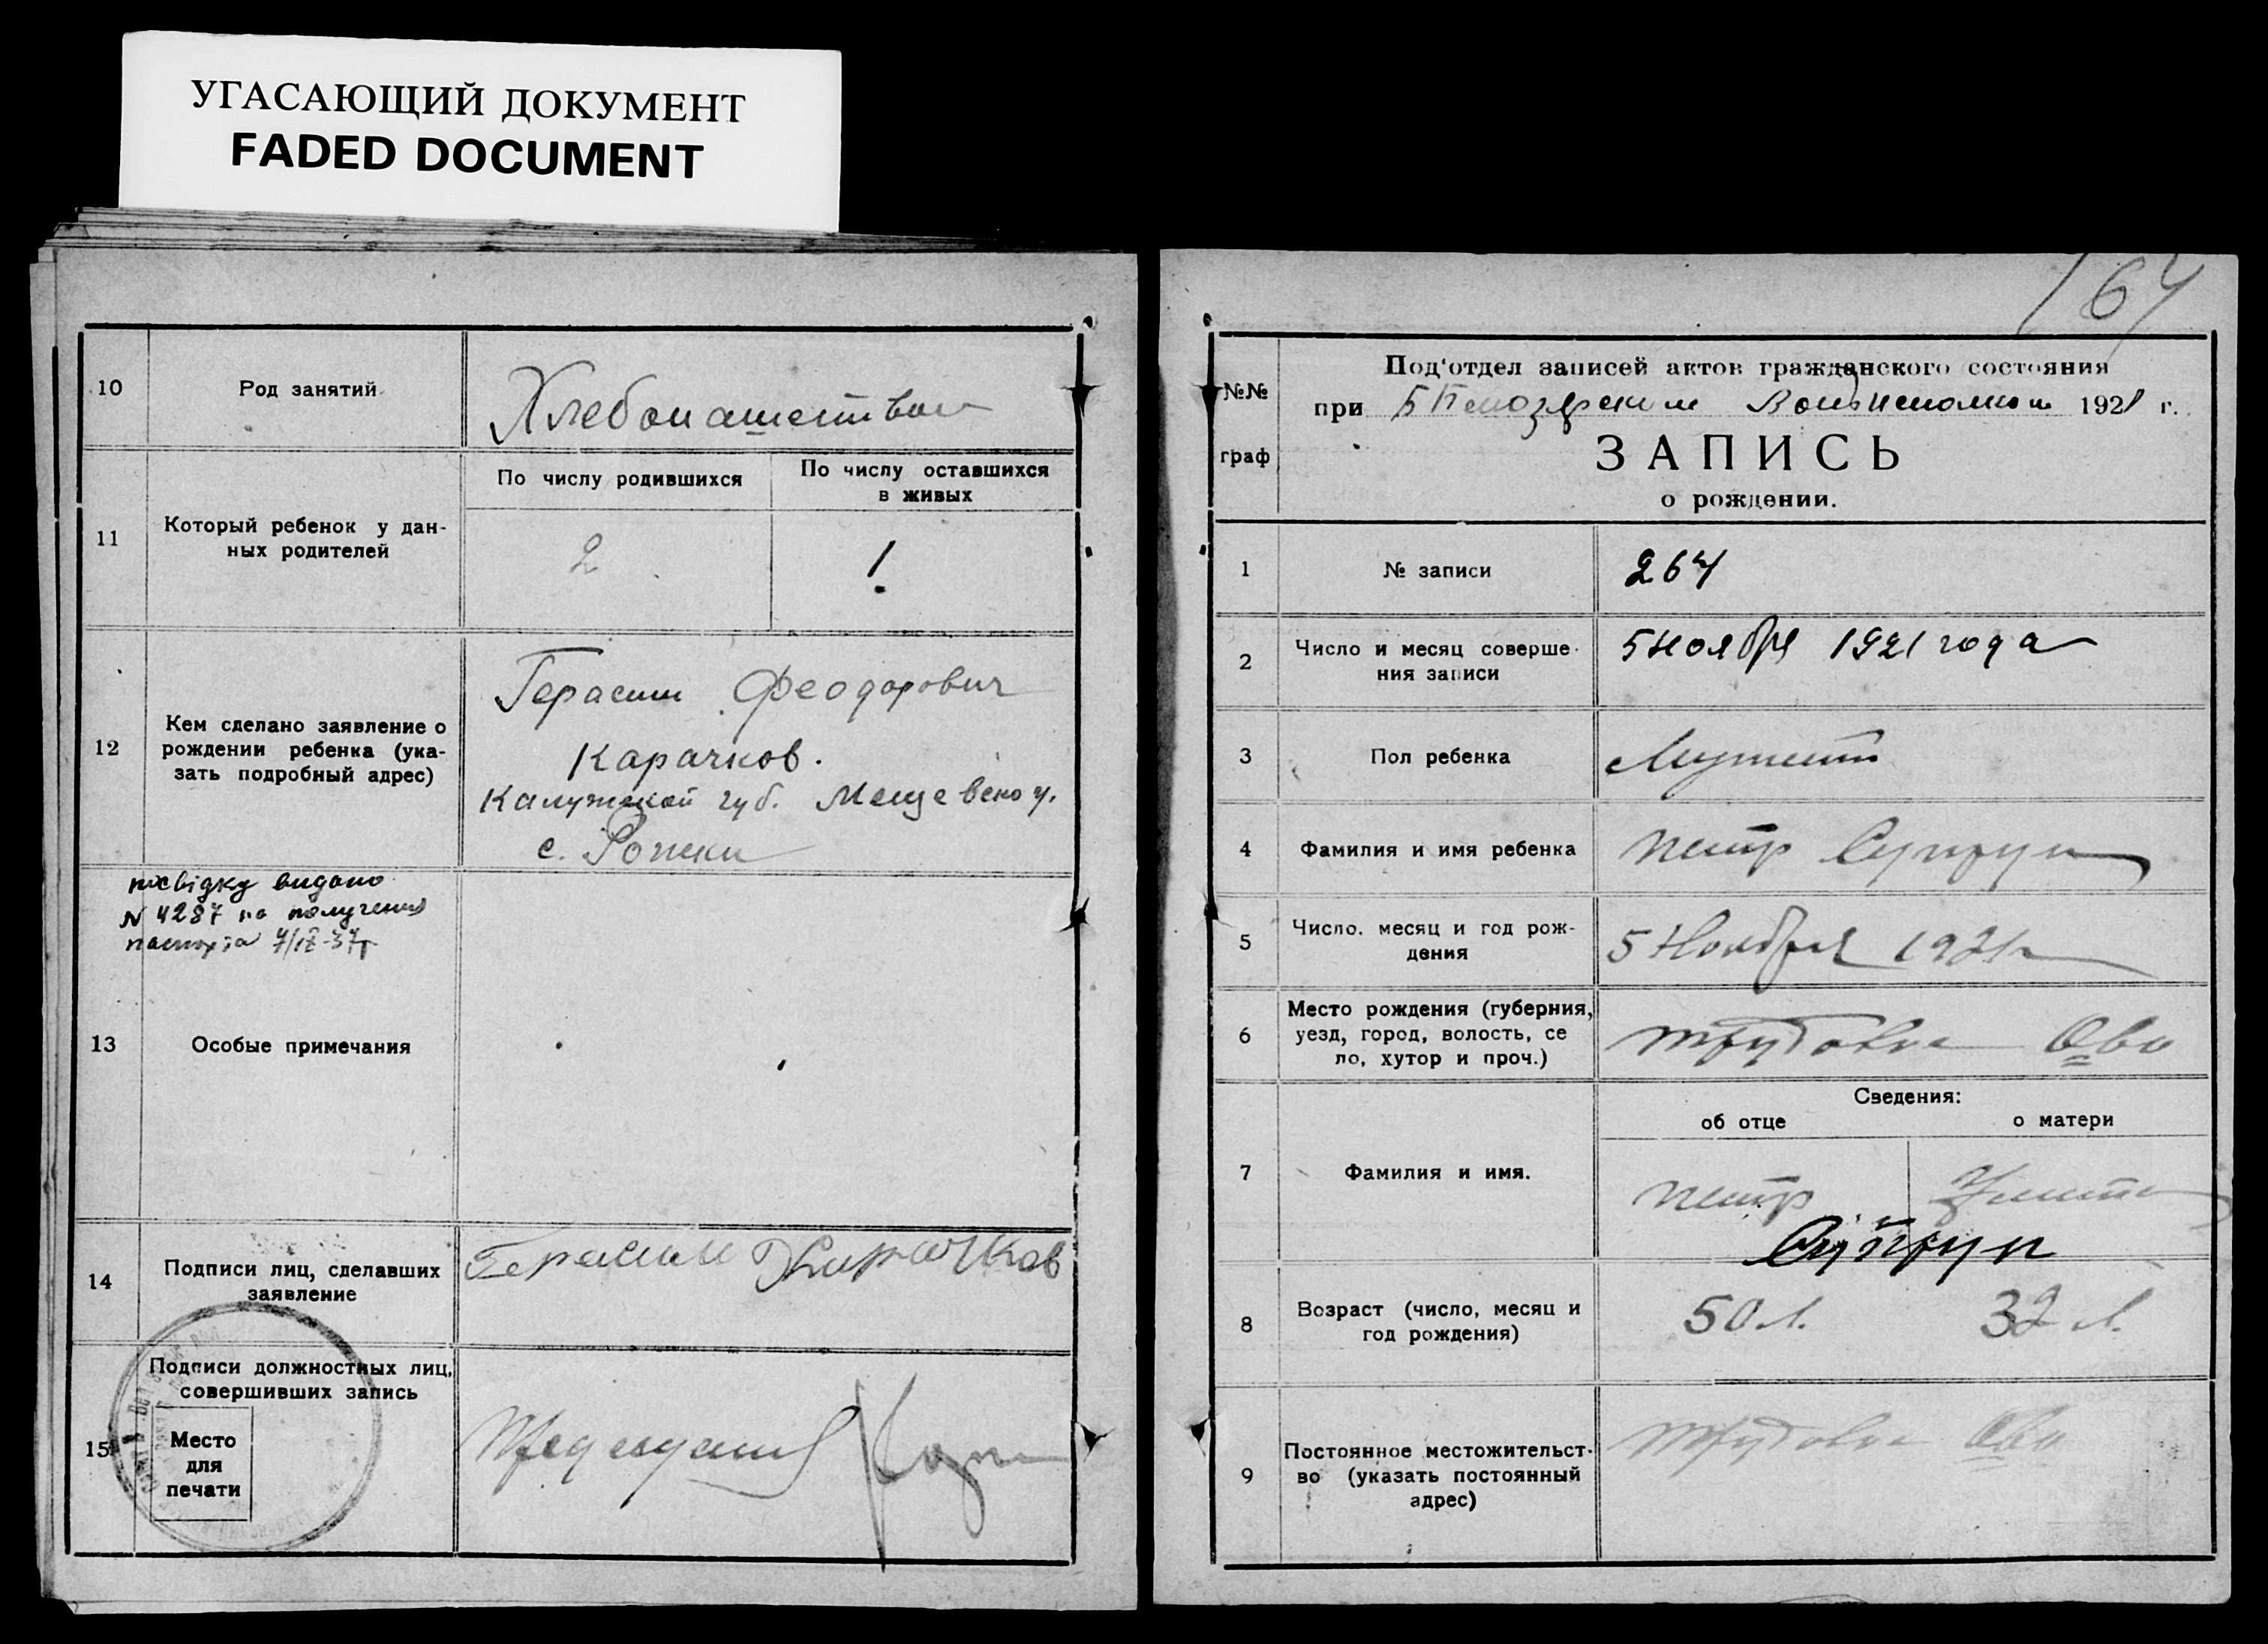 УГАСАЮЩИЙ ДОКУМЕНТ
FADED DOCUMENT
10
Род занятий
Хлебопашество
11
Который ребенок у дан-
ных родителей
По числу родившихся
По числу оставшихся
в живых
2
1
12
Кем сделано заявление о
рождении ребенка (ука-
зать подробный адрес)
Герасим Феодорович
Карачков.
Калужской губ. Мещевско у.
с.
посвідку видано
N 4287 на получения
паспорта 7/IX-37г
13
Особые примечания
14
Подписи лиц, сделавших
заявление
Герасим Карачков
15
Подписи должностных лиц,
совершивших запись
Место
для
печати
164
№№
граф
Под'отдел записей актов гражданского состояния
при 1921 г.
ЗАПИСЬ
о рождении.
1
№ записи
264
2
Число и месяц соверше-
ния записи
5 Ноября 1921 года
3
Пол ребенка
4
Фамилия и имя ребенка
Петр Супрун
5
Число. месяц и год рож-
дения
5 Ноября 1921г
6
Место рождения (губерния,
уезд, город, волость, се
ло, хутор и проч.)
7
Фамилия и имя.
Сведения:
об отце
о матери
Петр
Супрун
8
Возраст (число, месяц и
год рождения)
50 л.
32 л.
9
Постоянное местожительст-
во (указать постоянный
адрес)